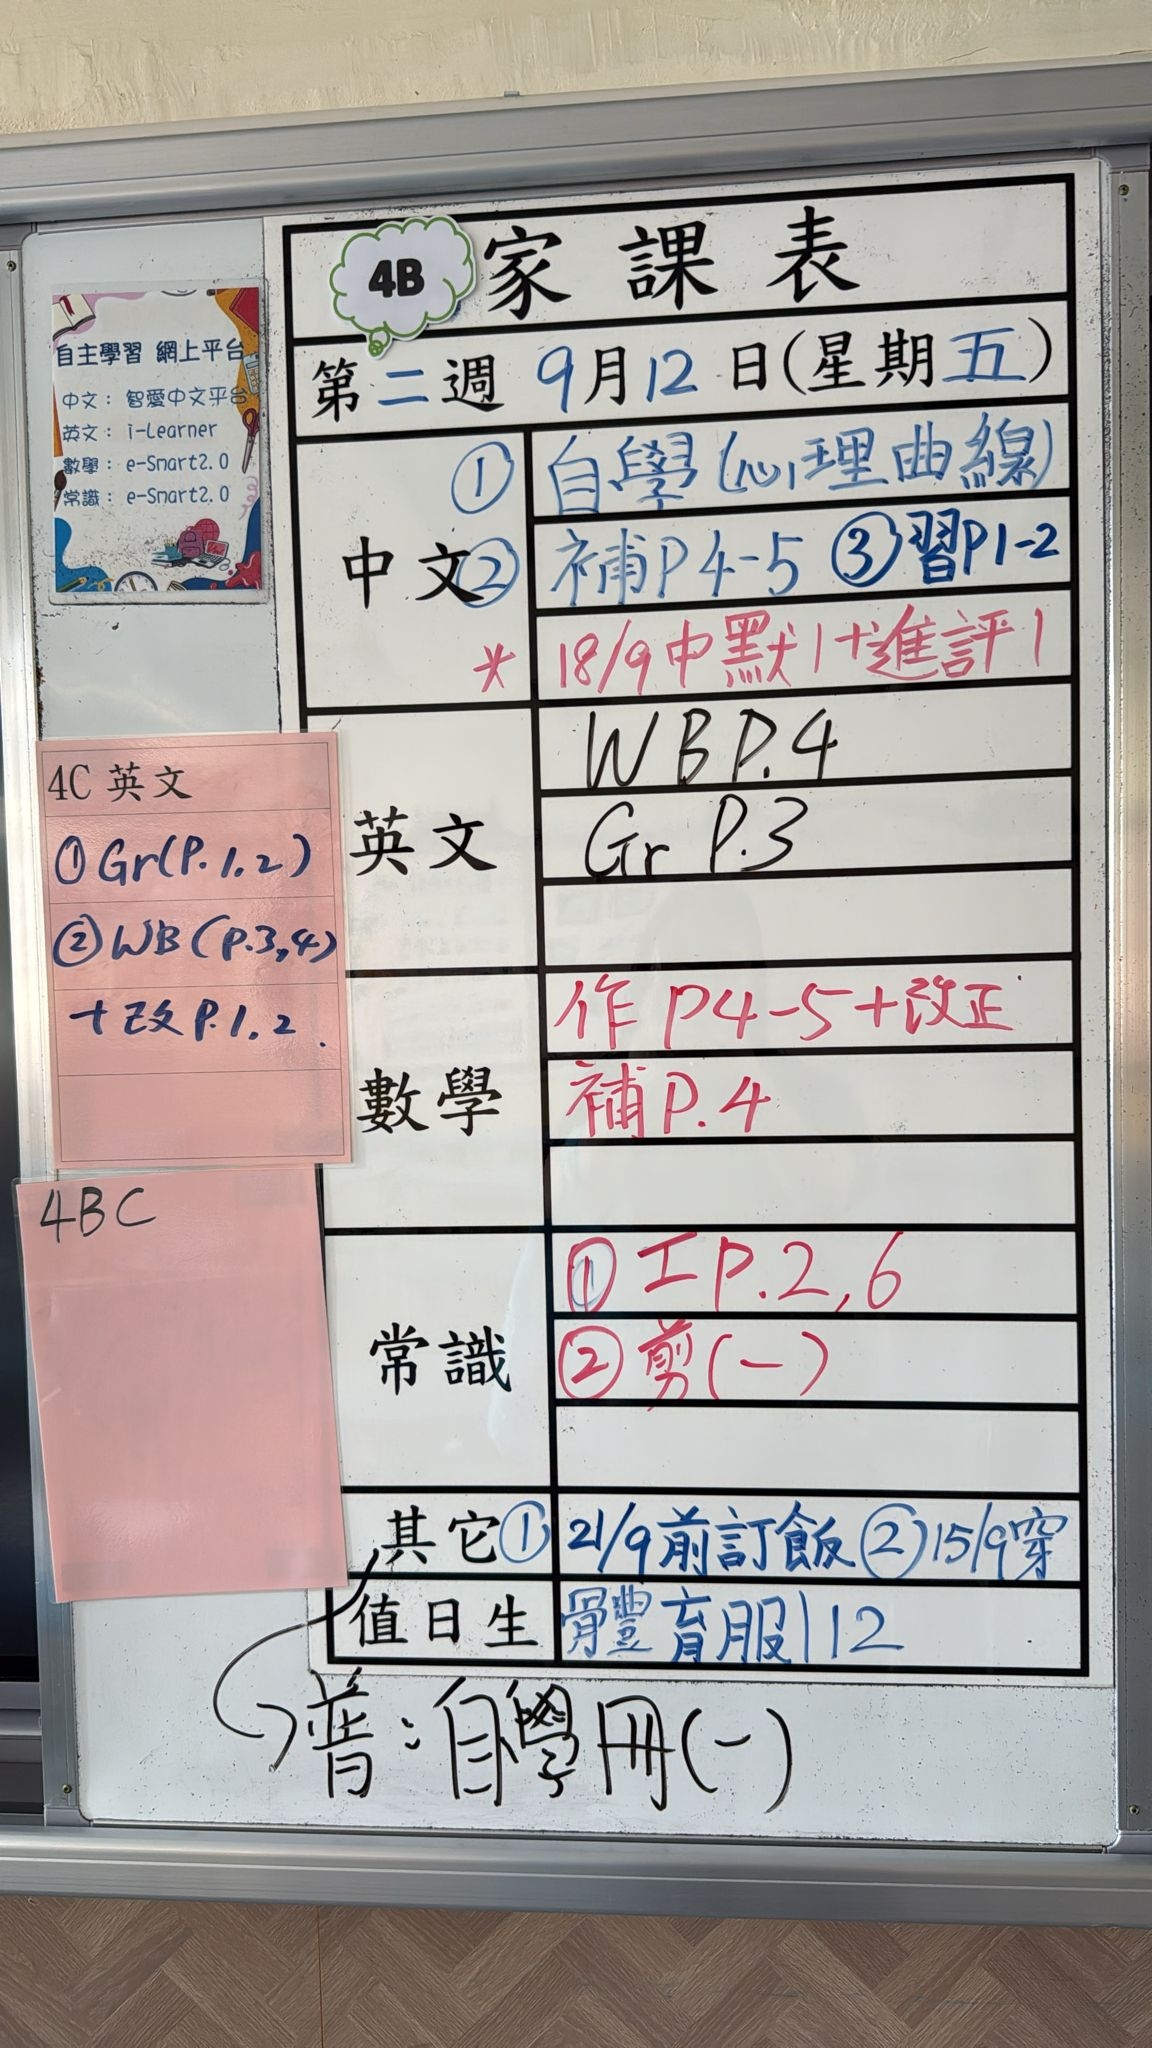 4B 家課表
第二週 9月12日(星期五)
自主學習 網上平台
中文： 智愛中文平台
英文： i-Learner
數學： e-Smart2.0
常識： e-Smart2.0
中文
① 自學(心理曲線)
② 補P4-5 ③習P1-2
* 18/9中默1+進評1
英文
WB P.4
Gr P.3
4C 英文
①Gr(P.1.2)
②WB(P.3,4)
+改P.1.2.
數學
作P4-5+改正
補P.4
4BC
常識
①工P.2,6
②剪(一)
其它 ①21/9前訂飯 ②15/9穿
值日生 體育服 | 12
普：自學冊(一)